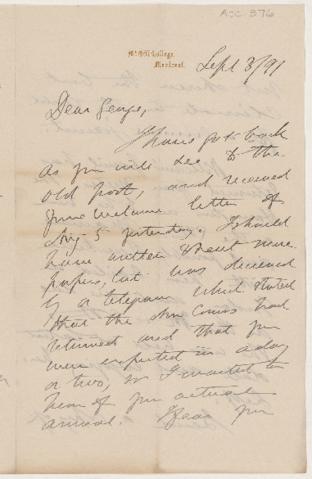 ACC-376
McGill College,
Montreal.
Sept 3/91
Dear George,
I have got back
as you will see to the
old post, and received
your welcome letter of
Aug 5 yesterday. I should
have written about news
papers, but was deceived
by a telegram which stated
that the had
returned and that you
were expected in a day
or two, so I waited to
hear of your actual
arrival. I fear you